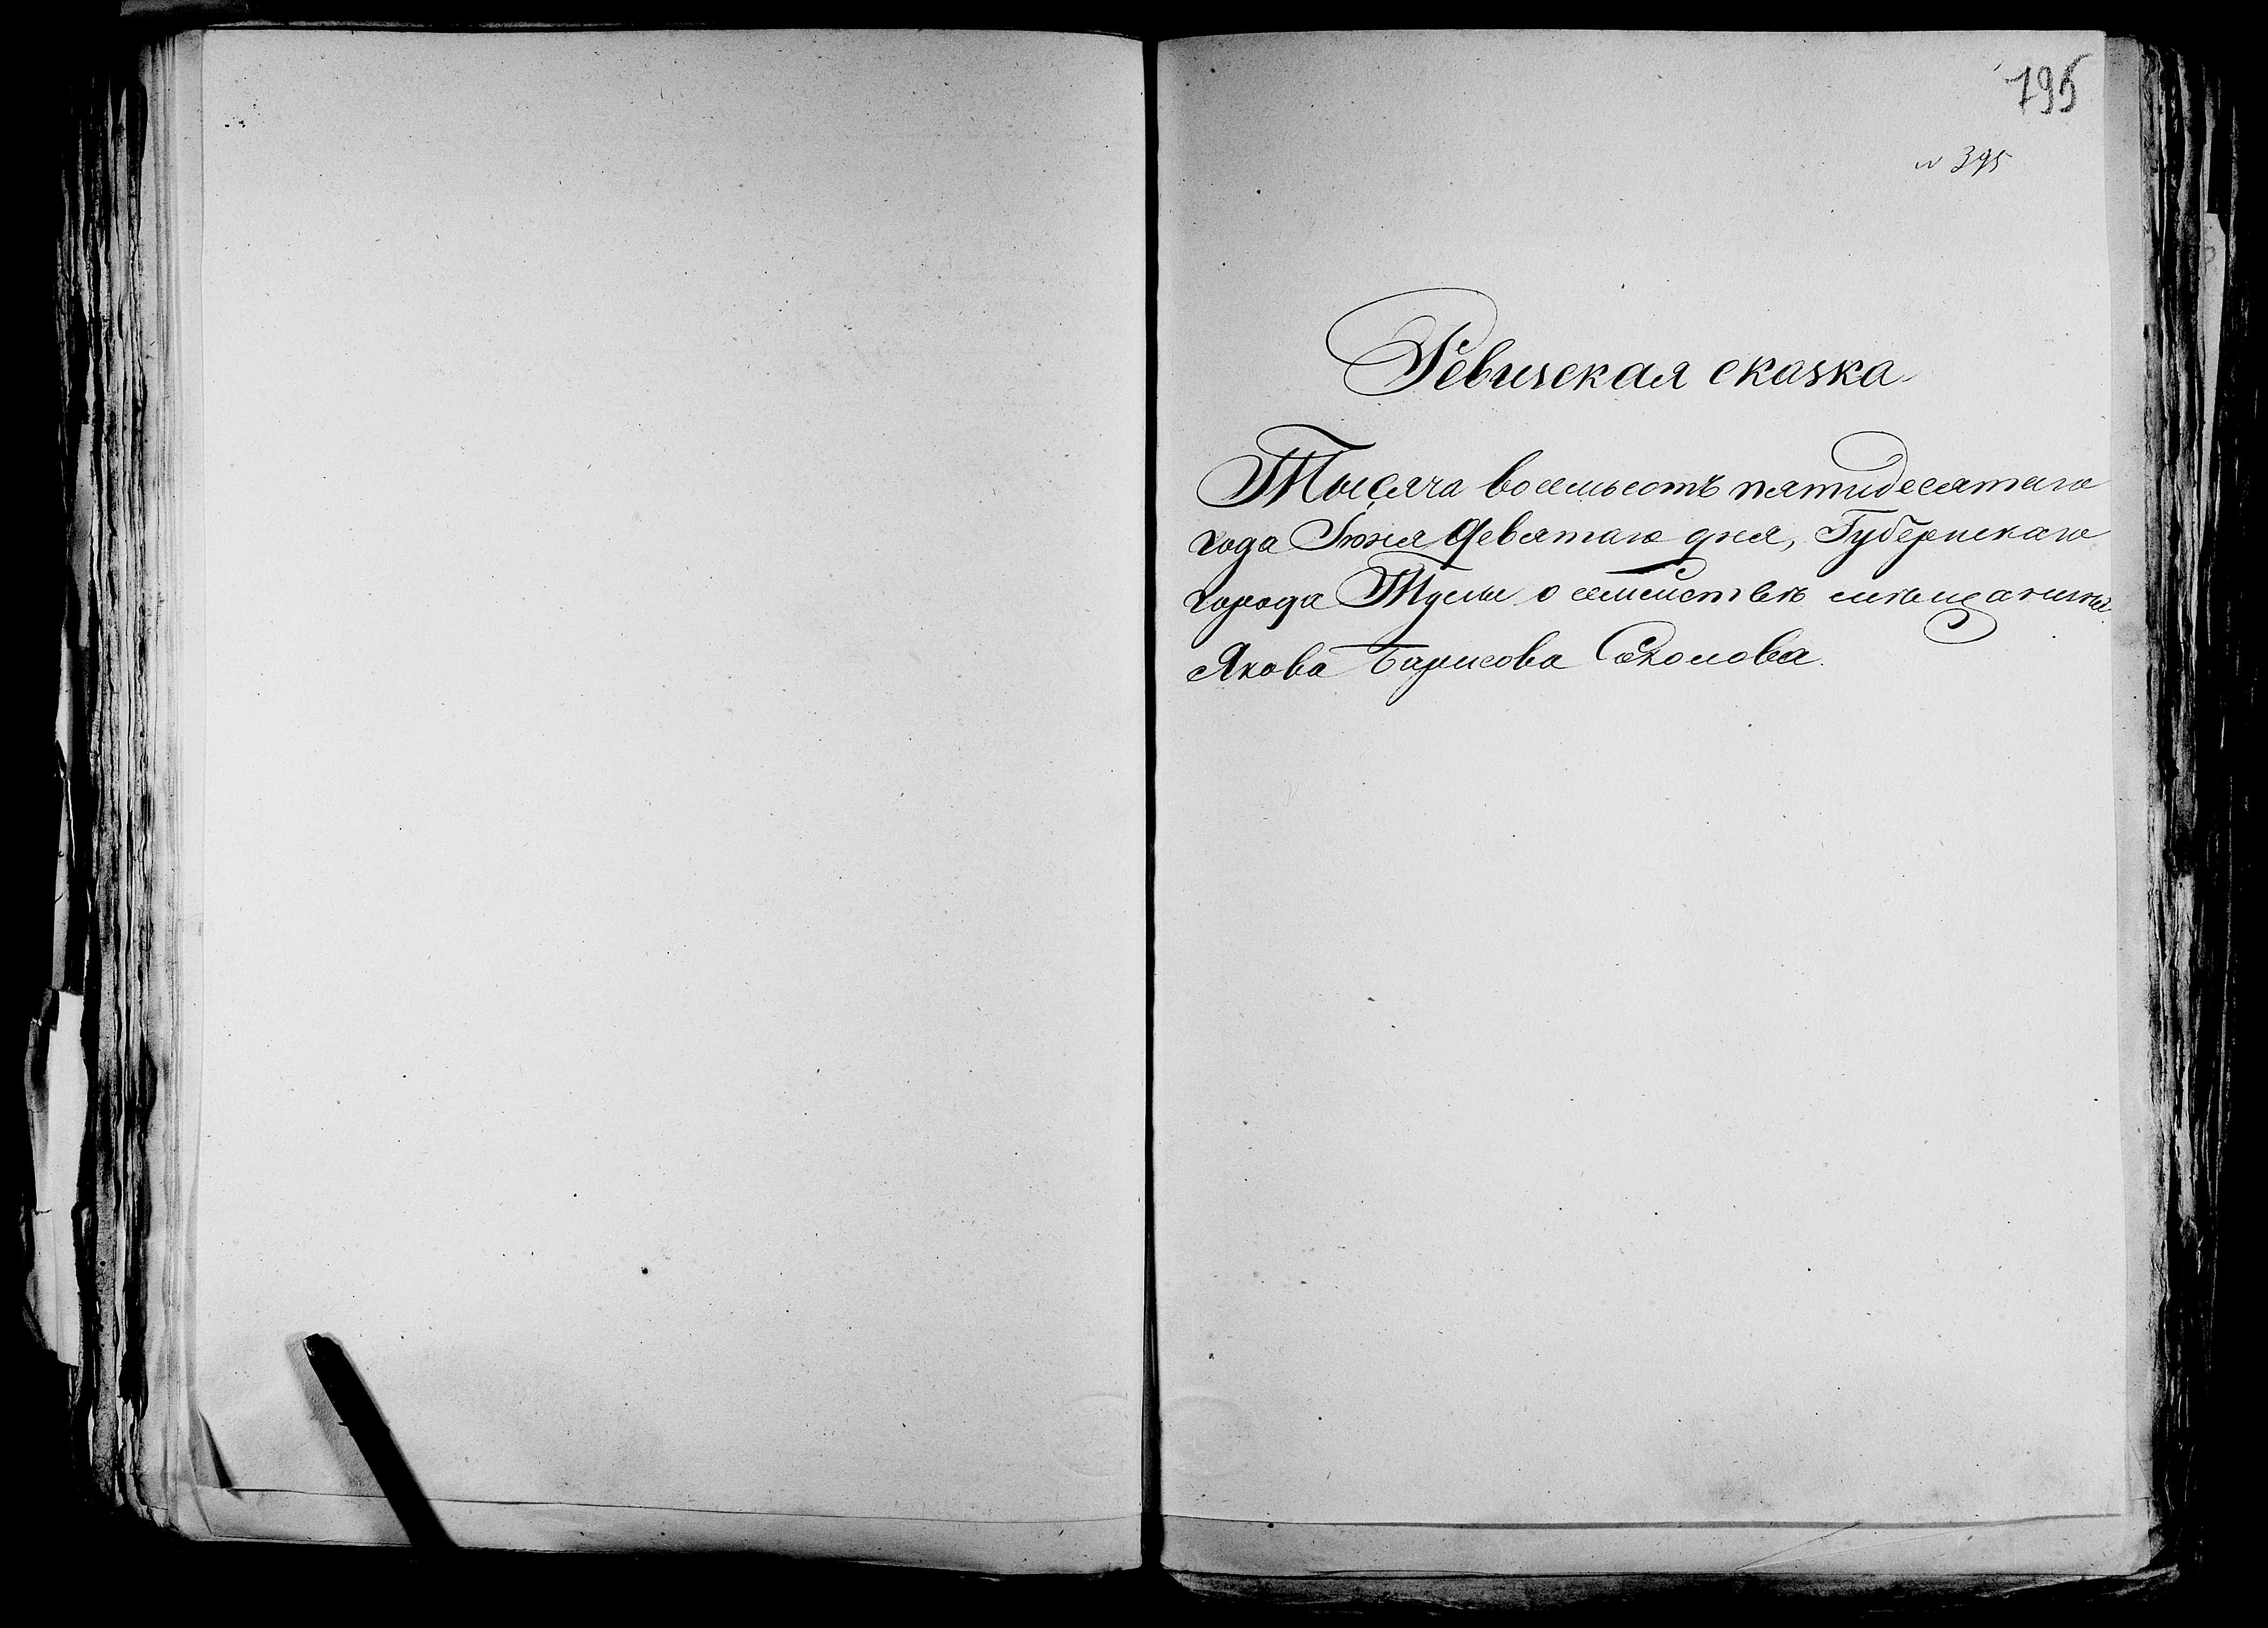 795
№ 395
Ревизская сказка
Тысяча восемьсотъ пятидесятаго
года Іюня девятаго дня, Губернскаго
города Тулы о семействѣ мѣщанина
Якова Барисова Соколова.